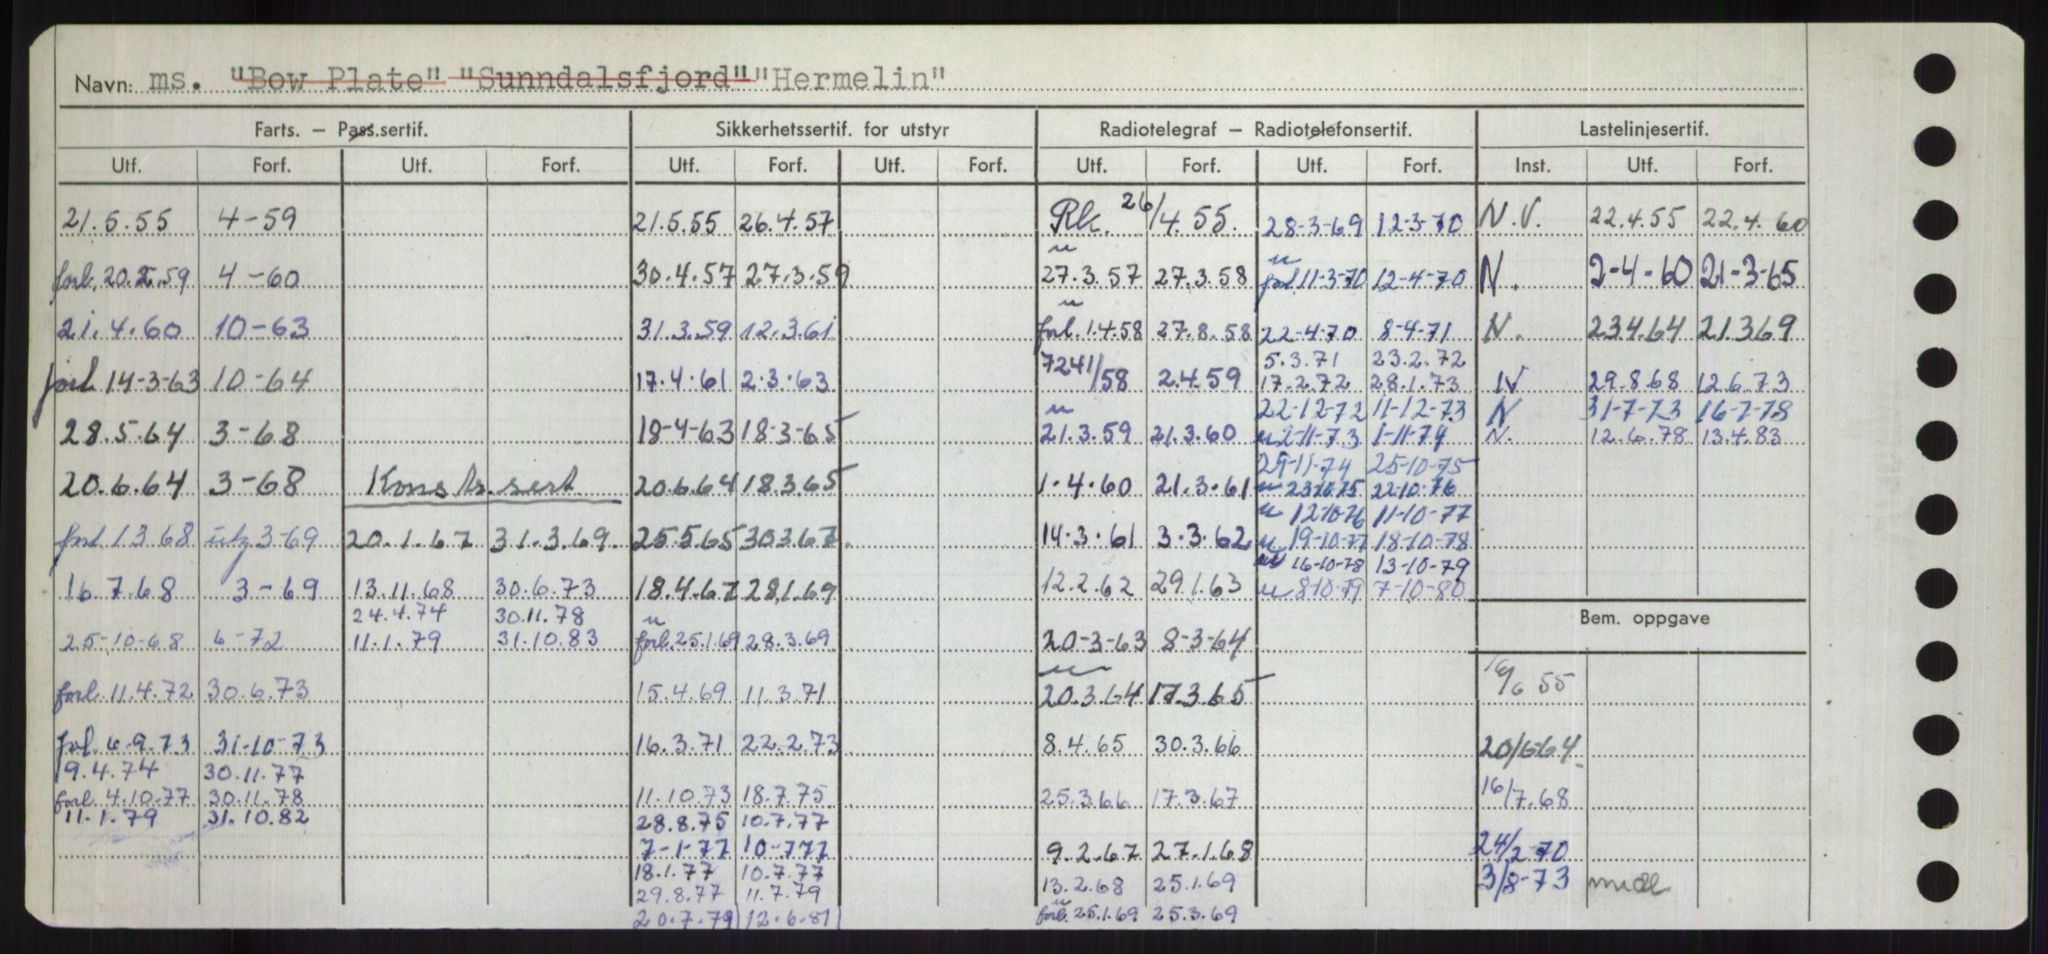 Navn: ms. "Bow Plate" "Sunndalsfjord" "Hermelin"
Farts. – Pass.sertif. Sikkerhetssertif. for utstyr Radiotelegraf – Radiotelefonsertif. Lastelinjesertif.
Utf. Forf. Utf. Forf. Utf. Forf. Utf. Forf. Utf. Forf. Utf. Forf. Inst. Utf. Forf.
21.5.55 4-59 21.5.55 26.4.57 Rk. 26/4.55. 28-3-69 12-3-70 N.V. 22.4.55 22.4.60
forl. 4-60 30.4.57 27.3.59 27.3.57 27.3.58 forl 11-3-70 12-4-70 N. 2-4-60 21-3-65
21.4.60 10-63 31.3.59 12.3.61 forl. 1.4.58 27.8.58 22-4-70 8-4-71 N. 23.4.64 21.3.69
5.3.71 23.2.72
forl 14-3-63 10-64 17.4.61 2.3.63 7241/58 2.4.59 17.2.72 28.1.73 N 29.8.68 12.6.73
22-12-72 11-12-73 N 31-7-73 16-7-78
28.5.64 3-68 18-4-63 18-3-65 21.3.59 21.3.60 2-11-73 1-11-74 N. 12.6.78 13.4.83
29-11-74 25-10-75
20.6.64 3-68 Konstr.sert 20.6.64 18.3.65 1.4.60 21.3.61 23-10-75 22-10-76
12-10-76 11-10-77
forl 1.3.68 3-69 20.1.67 31.3.69. 25.5.65 30.3.67. 14.3.61 3.3.62 19-10-77 18-10-78
16-10-78 13-10-79
16.7.68 3-69 13.11.68 30.6.73 18.4.67 28.1.69 12.2.62 29.1.63 8-10-79 7-10-80
24.4.74 30.11.78
Bem. oppgave
25-10-68 6-72 11.1.79 31.10.83 forl. 25.1.69 28.3.69 20-3-63 8-3-64
forl. 11.4.72 30.6.73 15.4.69 11.3.71 20.3.64 17.3.65 16/6 55
forl. 6-9-73 31-10-73 16.3.71 22.2.73 8.4.65 30.3.66 20/6-64
9.4.74 30.11.77
forl. 4.10.77 30.11.78 11.10.73 18.7.75 25.3.66 17.3.67 16/7.68
11.1.79 31.10.82 28.8.75 10.7.77
7-1-77 10-7-77 9.2.67 27.1.68 24/2-70
18.1.77 10.7.77 13.2.68 25.1.69 3/8-73
29.8.77 11.7.79
20.7.79 12.6.81 forl. 25.1.69 25.3.69